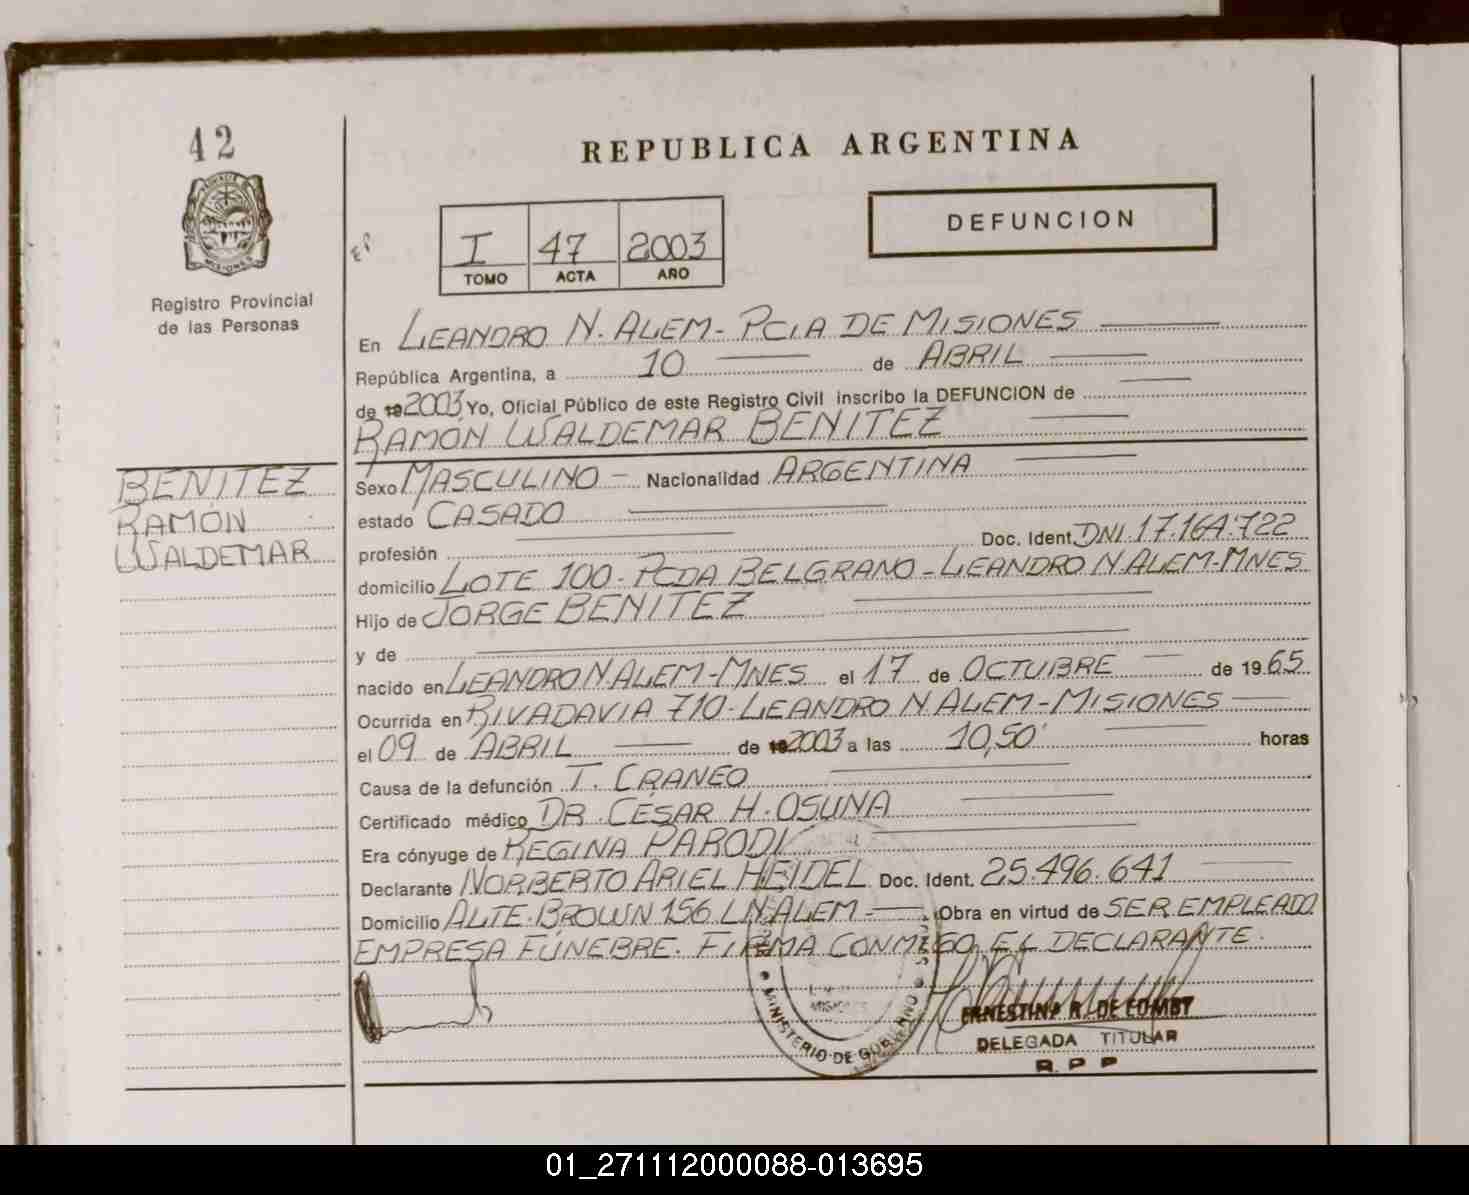 42
REPUBLICA ARGENTINA
DEFUNCION
I 47 2003
TOMO ACTA AÑO
Registro Provincial
de las Personas
En LEANDRO N. ALEM - PCIA DE MISIONES
República Argentina, a 10 de ABRIL
de 19 2003 Yo, Oficial Público de este Registro Civil inscribo la DEFUNCION de
RAMÓN WALDEMAR BENITEZ
BENITEZ
RAMÓN
WALDEMAR
Sexo MASCULINO - Nacionalidad ARGENTINA
estado CASADO
profesión Doc. Ident. DNI 17.164.722
domicilio LOTE 100 - PCDA BELGRANO - LEANDRO N. ALEM - MNES
Hijo de JORGE BENITEZ
y de
nacido en LEANDRO N. ALEM - MNES el 17 de OCTUBRE de 1965
Ocurrida en RIVADAVIA 710 - LEANDRO N ALEM - MISIONES
el 09 de ABRIL de 19 2003 a las 10,50' horas
Causa de la defunción T. CRANEO
Certificado médico DR. CESAR H. OSUNA
Era cónyuge de REGINA PARODI
Declarante NORBERTO ARIEL HEIDEL Doc. Ident. 25.496.641
Domicilio ALTE. BROWN 156 L N ALEM - Obra en virtud de SER EMPLEADO
EMPRESA FÚNEBRE. FIRMA CONMIGO EL DECLARANTE.
MINISTERIO DE GOBIERNO
ERNESTINA R. DE
DELEGADA TITULAR
R. P P
01_271112000088-013695